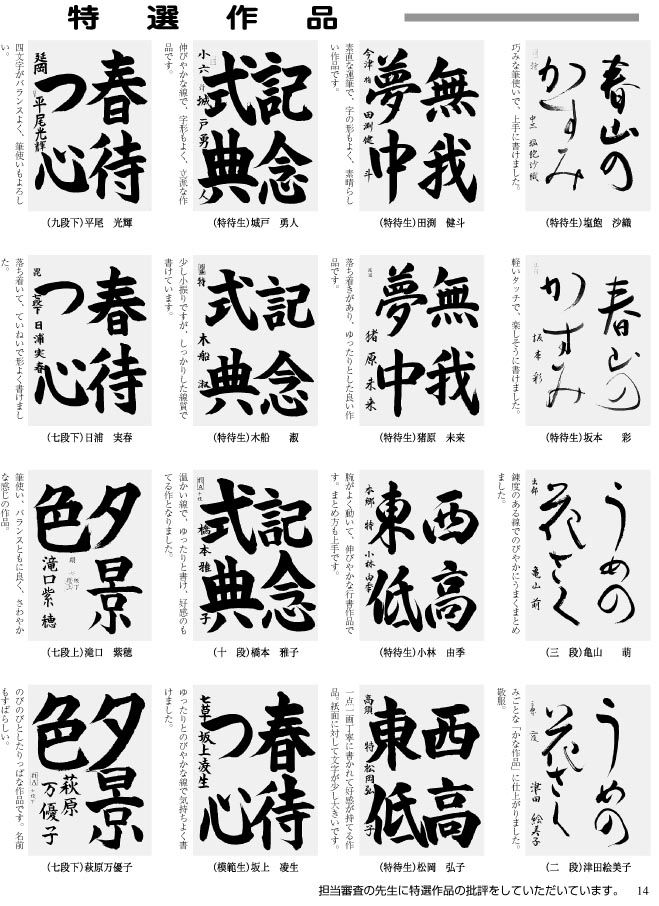 特選作品
春山の
かすみ
中二 塩飽沙織
巧みな筆使いで、上手に書けました。
(特待生)塩飽 沙織
無我
夢中
今津 特 田渕健斗
素直な運筆で、字の形もよく、素晴らしい作品です。
(特待生)田渕 健斗
記念
式典
小六 特 城戸勇人
伸びやかな線で、字形もよく、立派な作品です。
(特待生)城戸 勇人
春待
つ心
延岡 平尾光輝
四文字がバランスよく、筆使いもよろしい。
(九段下)平尾 光輝
春山の
かすみ
坂本彩
軽いタッチで、楽しそうに書けました。
(特待生)坂本 彩
無我
夢中
猪原未来
落ち着きがあり、ゆったりとした良い作品です。
(特待生)猪原 未来
記念
式典
特 木船淑
少し小振りですが、しっかりした線質で書けています。
(特待生)木船 淑
春待
つ心
七段下 日浦実春
落ち着いて、ていねいで形よく書けました。
(七段下)日浦 実春
うめの
花さく
亀山萌
錬度のある線でのびやかにうまくまとめました。
(三 段)亀山 萌
西高
東低
本郷 特 小林由季
腕がよく動いて、伸びやかな行書作品です。まとめ方も上手です。
(特待生)小林 由季
記念
式典
橋本雅子
温かい線で、ゆったりと書け、好感のもてる作となりました。
(十 段)橋本 雅子
夕景
色
滝口紫穂
筆使い、バランスともに良く、さわやかな感じの作品。
(七段上)滝口 紫穂
うめの
花さく
津田絵美子
みごとな「かな作品」に仕上がりました。敬服。
(二 段)津田絵美子
西高
東低
高須 特 松岡弘子
一点一画丁寧に書かれて好感が持てる作品。紙面に対して文字が少し大きいです。
(特待生)松岡 弘子
春待
つ心
七草 坂上凌生
ゆったりとのびやかな線で気持ちよく書けました。
(模範生)坂上 凌生
夕景
色
萩原万優子
のびのびとしたりっぱな作品です。名前もすばらしい。
(七段下)萩原万優子
担当審査の先生に特選作品の批評をしていただいています。 14